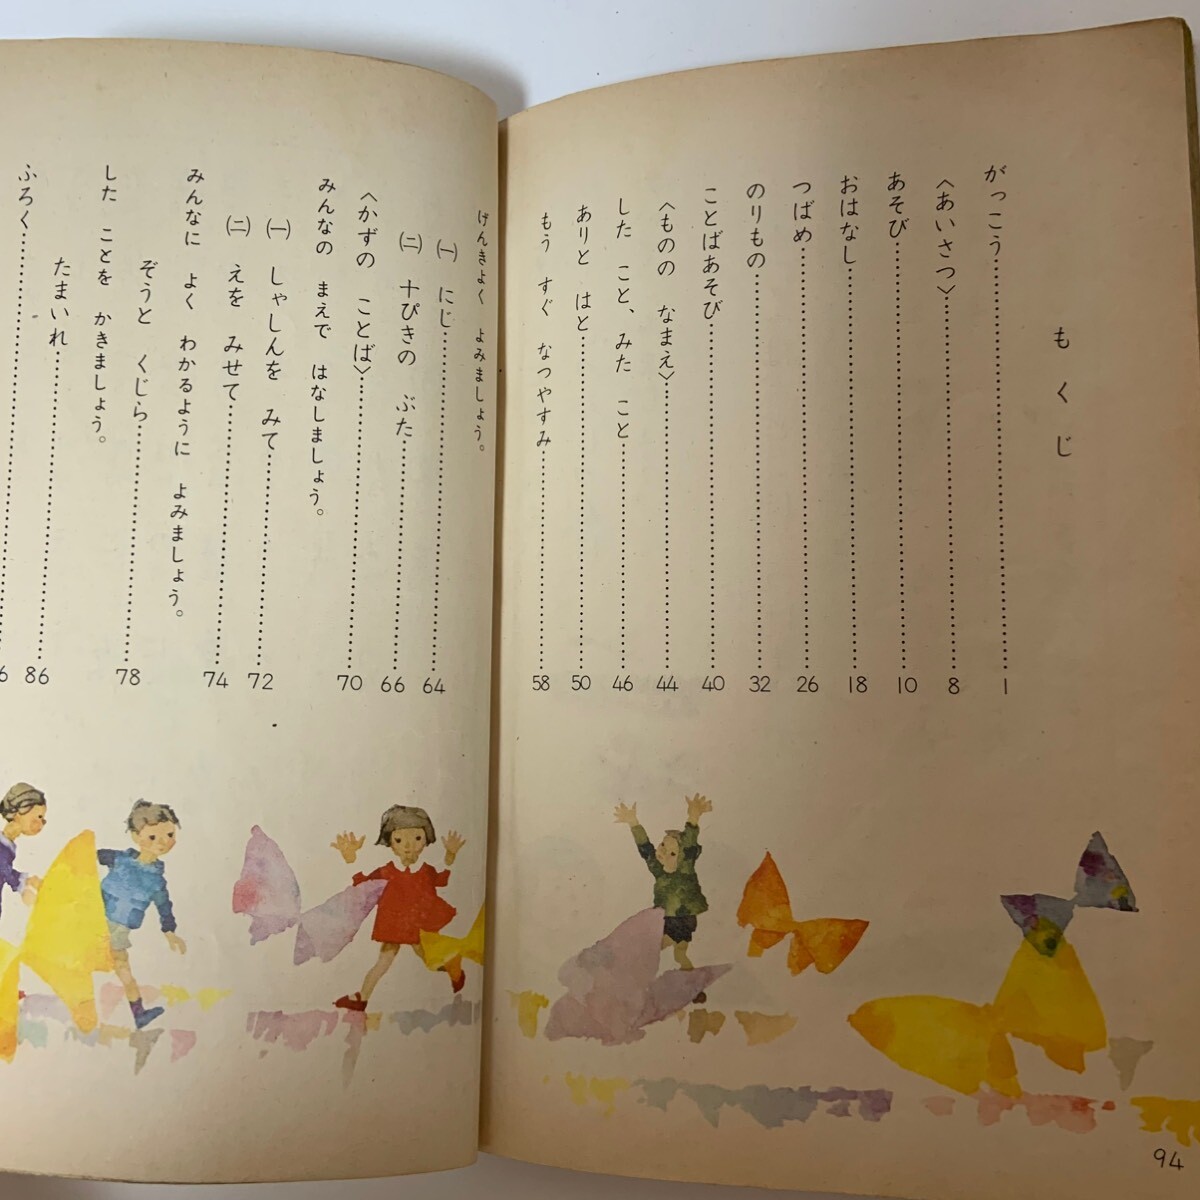 もくじ
がっこう……1
〈あいさつ〉……8
あそび……10
おはなし……18
つばめ……26
のりもの……32
ことばあそび……40
〈ものの なまえ〉……44
した こと、みた こと……46
ありと はと……50
もう すぐ なつやすみ……58
94
げんきよく よみましょう。
㈠ にじ……64
㈡ 十ぴきの ぶた……66
〈かずの ことば〉……70
みんなの まえで はなしましょう。
㈠ しゃしんを みて……72
㈡ えを みせて……74
みんなに よく わかるように よみましょう。
ぞうと くじら……78
した ことを かきましょう。
たまいれ……86
ふろく……